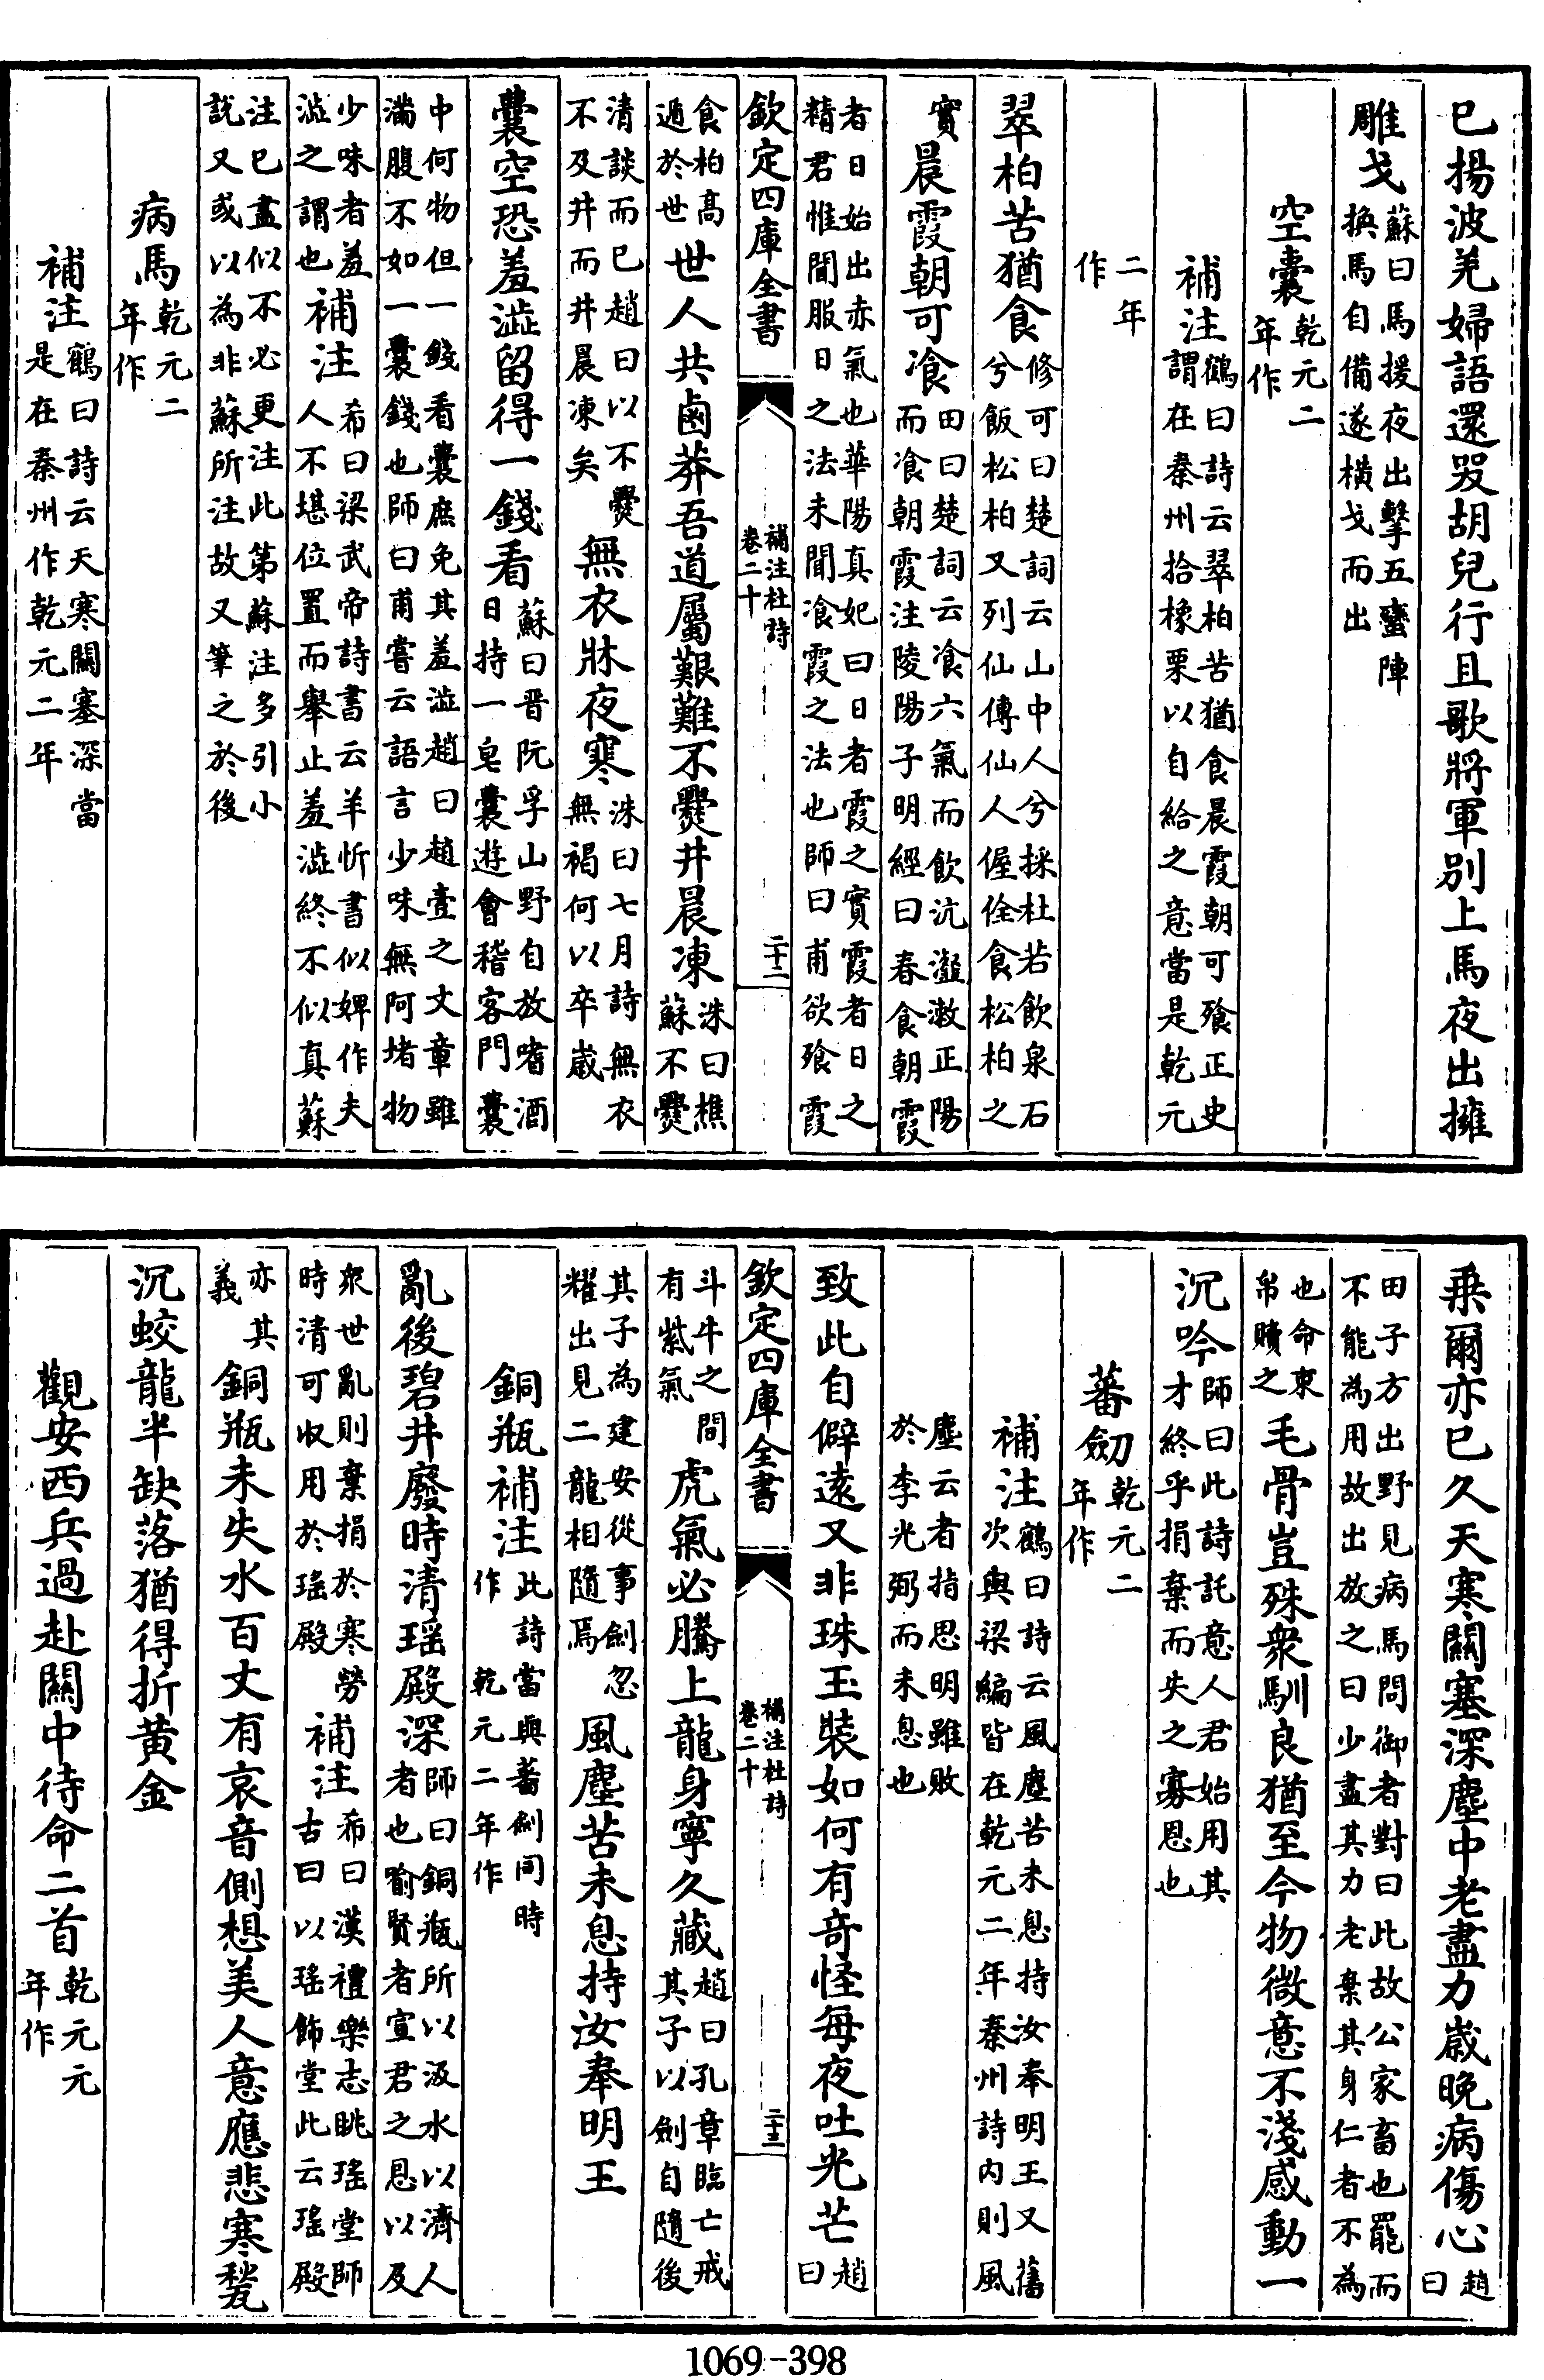 已揚波羌婦語還哭胡兒行且歌將軍别上馬夜出擁
雕戈蘇曰馬援夜出擊五蠻陣換馬自備遂橫戈而出
空囊乾元二年作
補注鶴曰詩云翠柏苦猶食晨霞朝可飱正史謂在秦州拾橡栗以自給之意當是乾元
二年作
翠柏苦猶食修可曰楚詞云山中人兮採杜若飲泉石兮飯松柏又列仙傳仙人偓佺食松柏之
實晨霞朝可飡田曰楚詞云飡六氣而飲沆瀣漱正陽而飡朝霞注陵陽子明經曰春食朝霞
者日始出赤氣也華陽真妃曰日者霞之實霞者日之精君惟聞服日之法未聞飡霞之法也師曰甫欲飱霞
欽定四庫全書 補注杜詩卷二十 二十二
食柏高遁於世世人共鹵莽吾道屬艱難不爨井晨凍洙曰樵蘇不爨
清談而已趙曰以不爨不及井而井晨凍矣無衣牀夜寒洙曰七月詩無衣無褐何以卒歲
囊空恐羞澁留得一錢看蘇曰晋阮孚山野自放嗜酒日持一皂囊遊會稽客門囊
中何物但一錢看囊庶免其羞澁趙曰趙壹之文章雖滿腹不如一囊錢也師曰甫嘗云語言少味無阿堵物
少味者羞澁之謂也補注希曰梁武帝詩書云羊忻書似婢作夫人不堪位置而舉止羞澁終不似真蘇
注已盡似不必更注此第蘇注多引小説又或以為非蘇所注故又筆之於後
病馬乾元二年作
補注鶴曰詩云天寒關塞深當是在秦州作乾元二年
乗爾亦已久天寒關塞深塵中老盡力歲晚病傷心趙曰
田子方出野見病馬問御者對曰此故公家畜也罷而不能為用故出放之曰少盡其力老棄其身仁者不為
也命束帛贖之毛骨豈殊衆馴良猶至今物微意不淺感動一
沉吟師曰此詩託意人君始用其才終乎捐棄而失之寡恩也
蕃劒乾元二年作
補注鶴曰詩云風塵苦未息持汝奉明王又舊次與梁編皆在乾元二年秦州詩内則風
塵云者指思明雖敗於李光弼而未息也
致此自僻逺又非珠玉裝如何有竒怪每夜吐光芒趙曰
欽定四庫全書 補注杜詩卷二十 二十三
斗牛之間有紫氣虎氣必騰上龍身寧久藏趙曰孔章臨亡戒其子以劍自隨後
其子為建安從事劍忽耀出見二龍相隨焉風塵苦未息持汝奉明王
銅瓶補注此詩當與蕃劍同時作乾元二年作
亂後碧井廢時清瑶殿深師曰銅瓶所以汲水以濟人者也喻賢者宣君之恩以及
衆世亂則棄捐於寒勞時清可收用於瑶殿補注希曰漢禮樂志眺瑶堂師古曰以瑶飾堂此云瑶殿
亦其義銅瓶未失水百丈有哀音側想美人意應悲寒甃
沉蛟龍半缺落猶得折黄金
觀安西兵過赴關中待命二首乾元元年作
1069-398